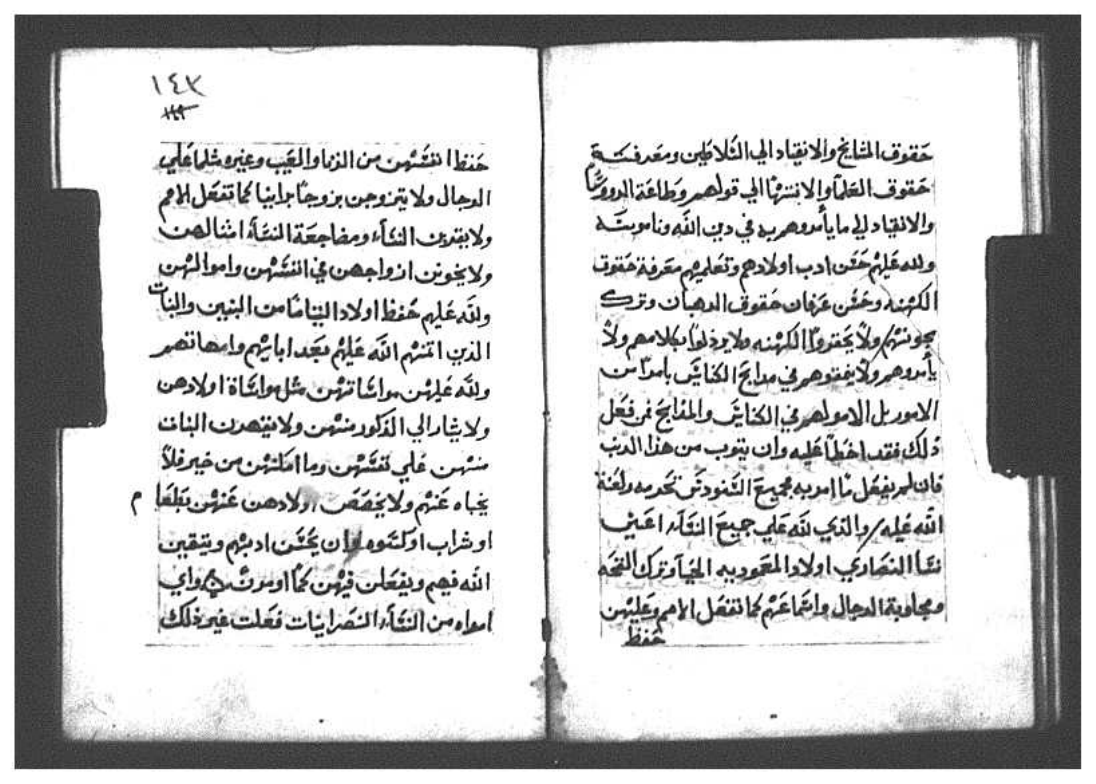 حقوق المشايخ والانقياد الي السلاطين ومعرفة
حقوق العلما والانتها الي قولهم وطاعة الرووسا
والانقياد لي ما يأمروهم به في دين الله وناموسه
ولله عليهم حسن ادب اولادهم وتعليمهم معرفة حقوق
الكهنه وحسن عرفان حقوق الرهبان وترك
ولا يحقروا الكهنه ولا يرذلوا بكلامهم ولا
يأمروهم ولا ينفدوهم في مدابح الكنايس بامرا من
الامور بل الامر لهم في الكنايس والمدابح فمن فعل
ذلك فقد اخطأ عليه وان يتوب من هذا الدنب
فان لم يفعل ما امر به مجميع السنودس تحرمه ولعنة
الله عليه والذي لله علي جميع النسآء اعني
نسآ النصاري اولاد المعموديه الحيآ وترك القحة
ومجاوبة الرجال واستماعهم كما تفعل الامم وعليهن
حفظ
١٤٣
حفظ انفسهن من الزنا والعيب وغيره مثل ما علي
الرجال ولا يتزوجن بزوجا برانيا كما تفعل الامم
ولا يقربن النسآء ومضاجعة النسآء امثالهن
ولا يخونن ازواجهن في انفسهن واموالهن
ولله عليهم حفظ اولاد اليتاما من البنين والبنات
الذين اتمنهم الله عليهم بعد ابايهم وامهاتهم
ولله عليهن مواساتهن مثل مواساة اولادهن
ولا يشار الي الذكور منهن ولا ينهدن البنات
منهن علي نفسهن وما امكنهن من خير فلا
يخباه عنهم ولا يخصص اولادهن عنهن بطعام
او شراب او كسوه وان يحسن ادبهم ويتقين
الله فيهم ويفعلن فيهن كما اومرن واي
امراه من النسآء النصرانيات فعلت غير ذلك